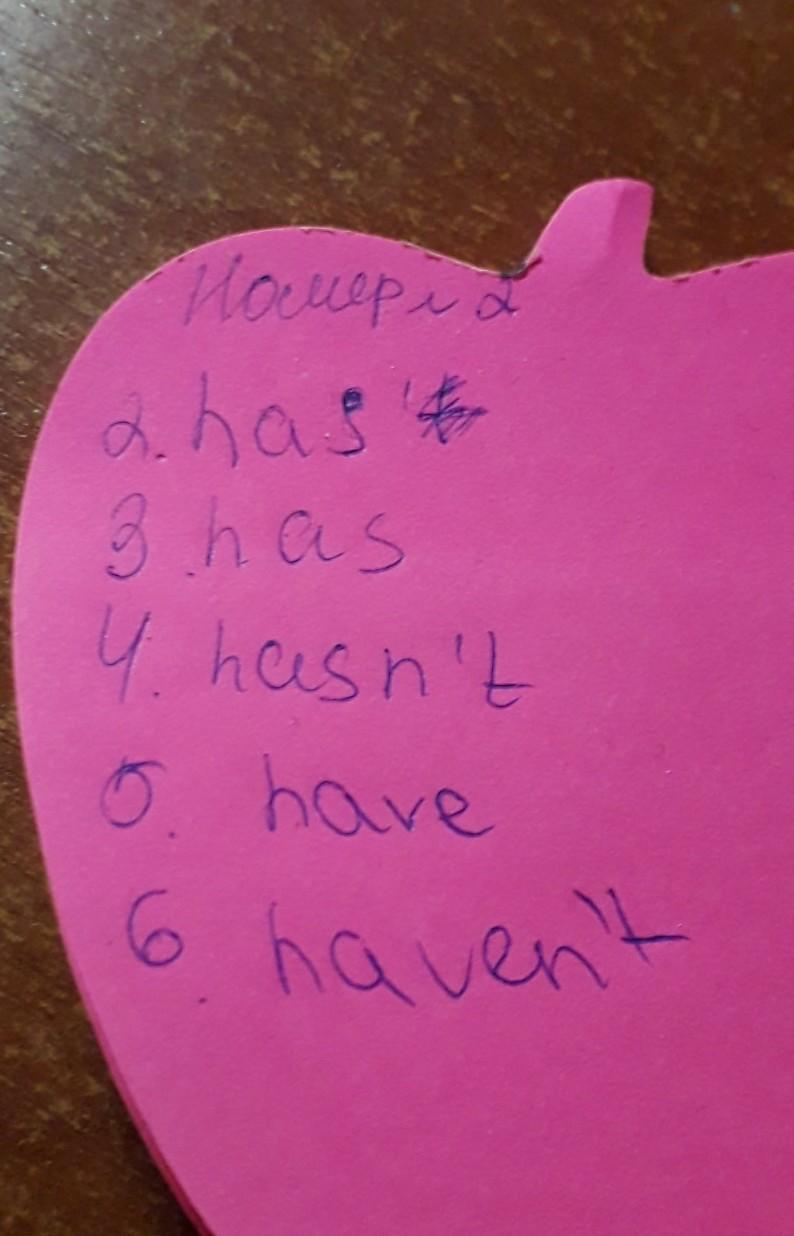 Номер 2
2. has'
3. has
4. hasn't
5. have
6. haven't